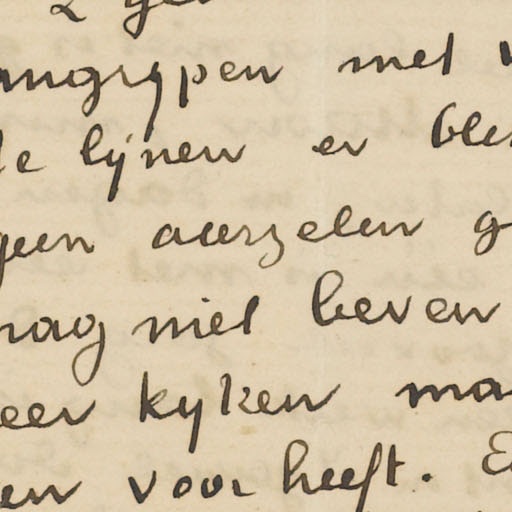 angrypen met
de lijnen er
geen aarzelen g
mag niet beven
eer kyken ma
en voor heeft. E